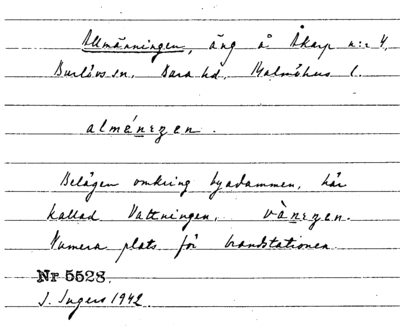 Allmänningen, äng å Åkarp n:r 4,
Burlövs sn. Bara hd. Malmöhus l.
alménęzen.
Belägen omkring byadammen, här
kallad Vattningen, vànęzen.
Numera plats för brandstationen.
Nr 5528.
I. Ingers 1942.